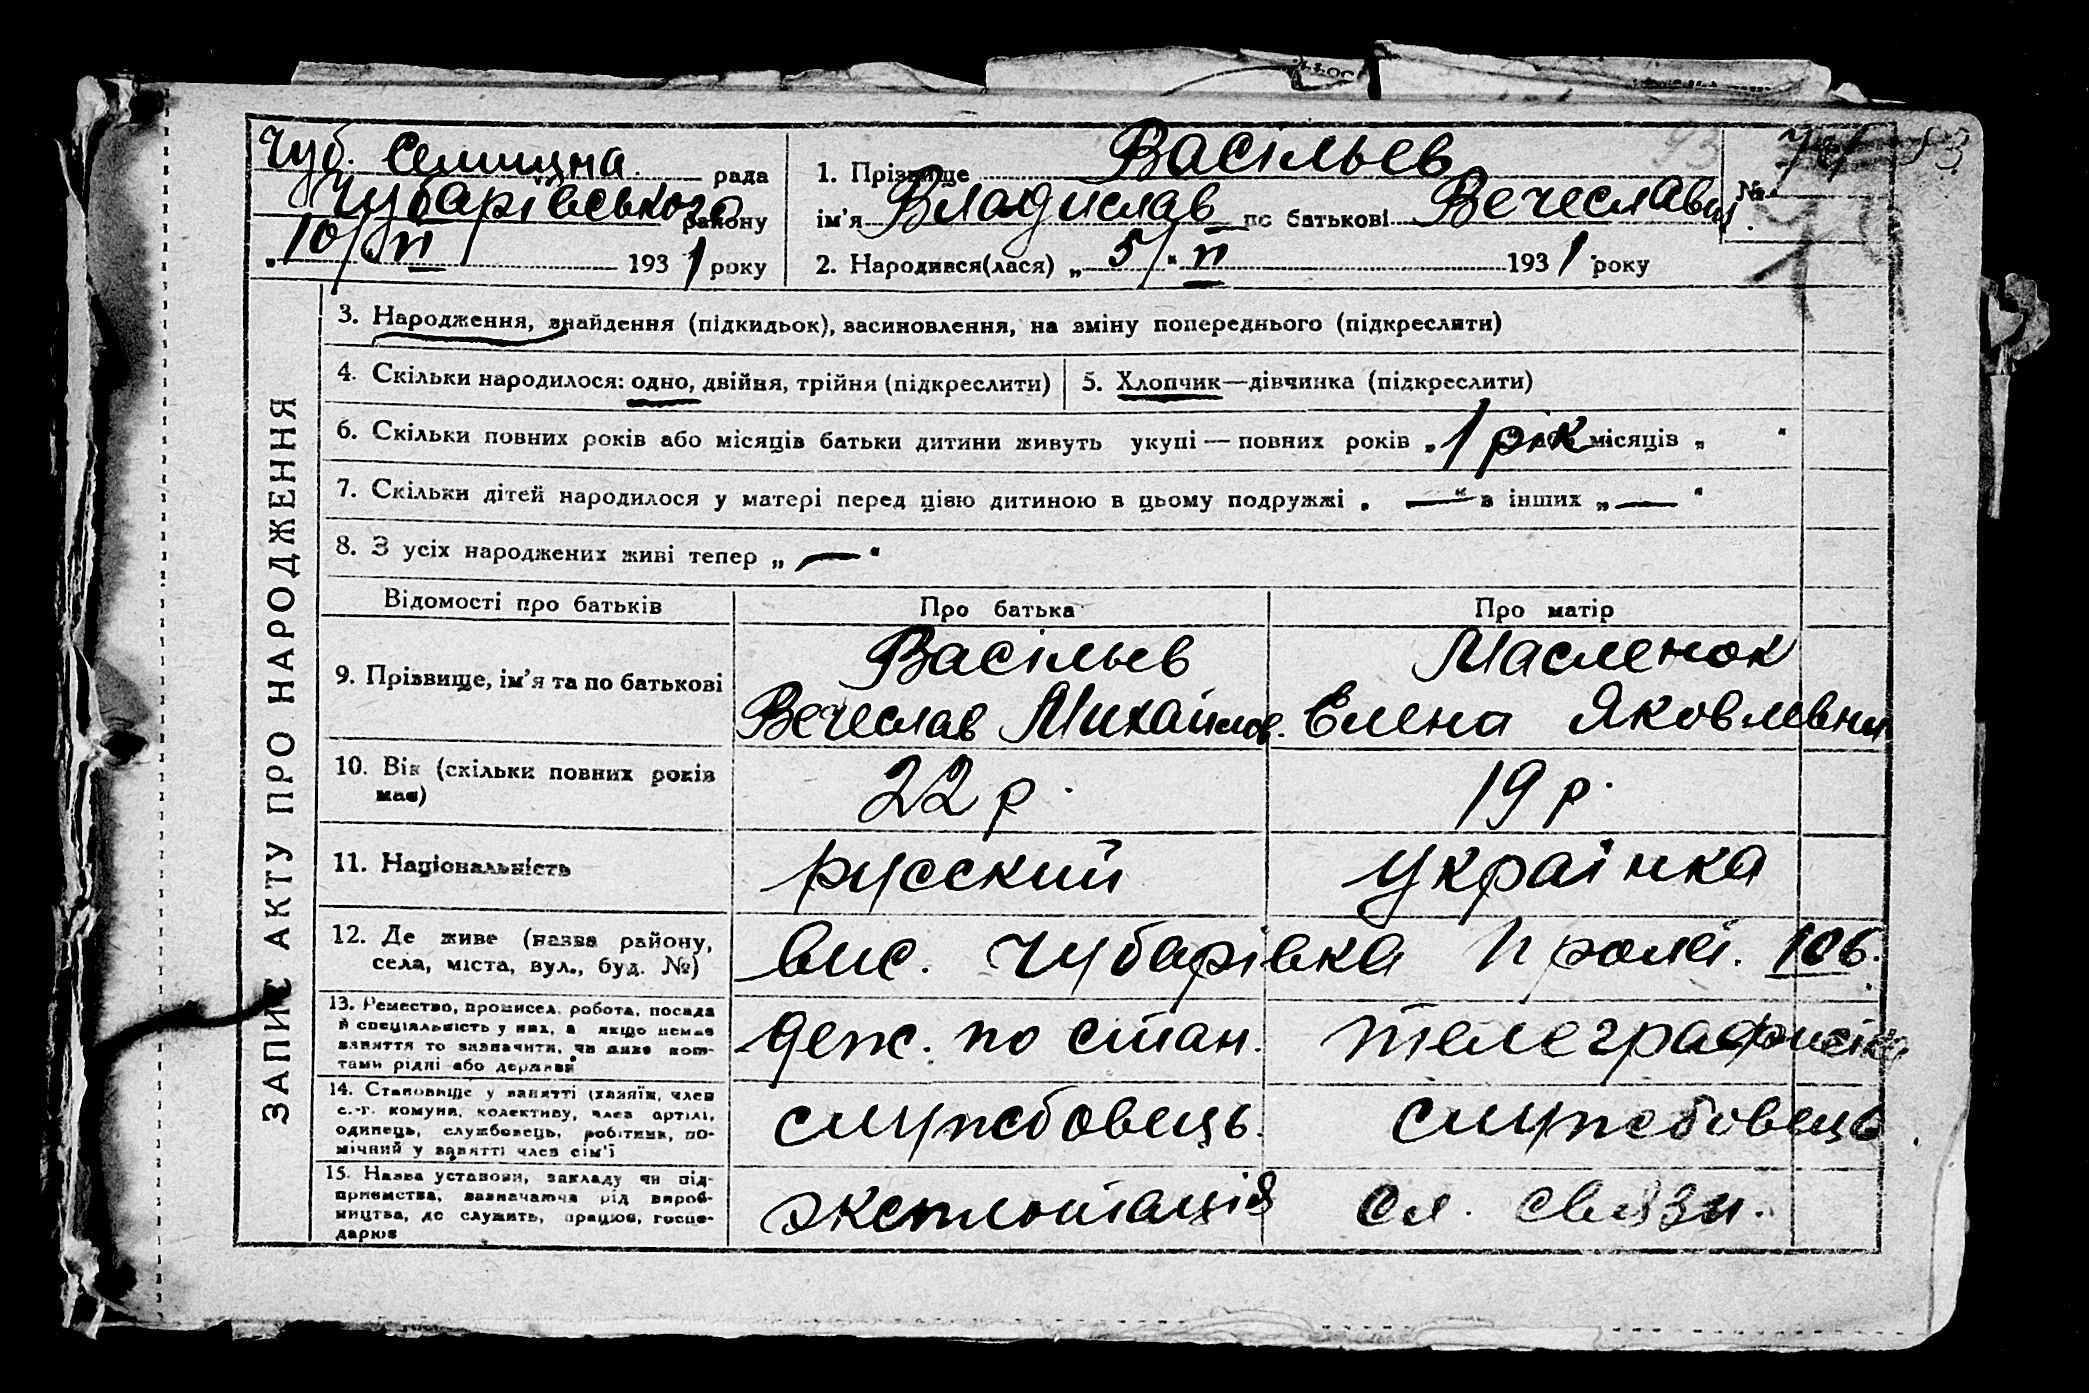 Чуб. Селищна рада
Чубарівського району
„10/VI 1931 року
1. Прізвище Васільев
ім’я Владислав по батькові Вечеславич
№
2. Народився(лася) „5/“ VI 1931 року
93
ЗАПИС АКТУ ПРО НАРОДЖЕННЯ
3. Народження, знайдення (підкидьок), засиновлення, на зміну попереднього (підкреслити)
4. Скільки народилося: одно, двійня, трійня (підкреслити)
5. Хлопчик—дівчинка (підкреслити)
6. Скільки повних років або місяців батьки дитини живуть укупі — повних років „1 рік місяців „ “
7. Скільки дітей народилося у матері перед цією дитиною в цьому подружжі „ — “ в інших „ — “
8. З усіх народжених живі тепер „ — “
Відомості про батьків
Про батька
Про матір
9. Прізвище, ім’я та по батькові
Васільев
Вечеслав Михайлов.
Масленок
Елена Яковлевна
10. Вік (скільки повних років
має)
22 р.
19 р.
11. Національність
русский
украінка
12. Де живе (назва району,
села, міста, вул., буд. №)
вис. Чубарівка 106.
13. Ремество, промисел, робота, посада
й спеціяльність у них, а якщо немає
заняття то зазначити, чи живе кош-
тами рідні або держави
деж. по стан.
телеграфистка
14. Становище у занятті (хазяїн, член
с.-г. комуни, колективу, член артілі,
одинець, службовець, робітник, по-
мічний у занятті член сім’ї
службовець.
службовець.
15. Назва установи, закладу чи під-
приємства, зазначаючи рід вироб-
ництва, де служить, працює, госпо-
дарює
эксплотація
сл. связи.